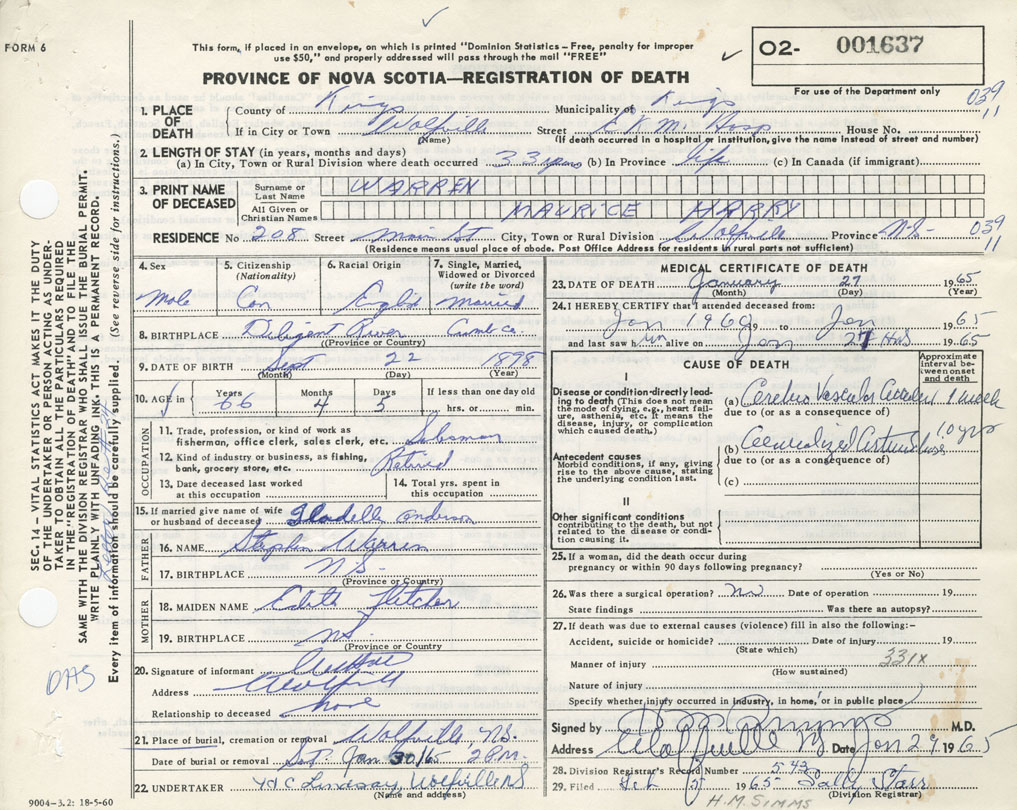 FORM 6
This form, if placed in an envelope, on which is printed "Dominion Statistics - Free, penalty for improper
use $50," and properly addressed will pass through the mail "FREE"
PROVINCE OF NOVA SCOTIA—REGISTRATION OF DEATH
O2- 001637
For use of the Department only
039
11
1. PLACE OF DEATH
County of Kings Municipality of Kings
If in City or Town Wolfville Street E K M Hosp House No.
(Name) (If death occurred in a hospital or institution, give the name instead of street and number)
2. LENGTH OF STAY (in years, months and days)
(a) In City, Town or Rural Division where death occurred 33 years (b) In Province life (c) In Canada (if immigrant)
3. PRINT NAME OF DECEASED
Surname or Last Name WARREN
All Given or Christian Names MAURICE HARRY
RESIDENCE No 208 Street Main St City, Town or Rural Division Wolfville Province N.S. 039
11
(Residence means usual place of abode. Post Office Address for residents in rural parts not sufficient)
4. Sex Male
5. Citizenship (Nationality) Can
6. Racial Origin English
7. Single, Married, Widowed or Divorced (write the word) Married
8. BIRTHPLACE Diligent River Cumb Co.
(Province or Country)
9. DATE OF BIRTH Sept 22 1898
(Month) (Day) (Year)
10. AGE in Years 66 Months 4 Days 5 If less than one day old hrs. or min.
OCCUPATION
11. Trade, profession, or kind of work as
fisherman, office clerk, sales clerk, etc. Salesman
12. Kind of industry or business, as fishing,
bank, grocery store, etc. Retired
13. Date deceased last worked
at this occupation
14. Total yrs. spent in
this occupation
15. If married give name of wife
or husband of deceased
FATHER
16. NAME Stephen Warren
17. BIRTHPLACE N.S.
(Province or Country)
MOTHER
18. MAIDEN NAME Edith Fletcher
19. BIRTHPLACE N.S.
(Province or Country)
20. Signature of informant
Address Wolfville
Relationship to deceased none
21. Place of burial, cremation or removal Wolfville, N.S.
Date of burial or removal Sat. Jan 30/65 2 P.M.
22. UNDERTAKER Lindsay Wolfville NS
(Name and address)
MEDICAL CERTIFICATE OF DEATH
23. DATE OF DEATH January 27 1965
(Month) (Day) (Year)
24. I HEREBY CERTIFY that I attended deceased from:
Jan 1960 19 to Jan 1965
and last saw him alive on Jan 27 1965
CAUSE OF DEATH
Approximate interval between onset and death
I
Disease or condition directly leading
to death (This does not mean
the mode of dying, e.g., heart failure,
asthenia, etc. It means the
disease, injury, or complication
which caused death.)
(a) Cerebro Vascular Accident 1 week
due to (or as a consequence of)
Antecedent causes
Morbid conditions, if any, giving
rise to the above cause, stating
the underlying condition last.
(b) Generalized 10 yrs
due to (or as a consequence of)
(c)
II
Other significant conditions
contributing to the death, but not
related to the disease or condition
causing it.
25. If a woman, did the death occur during
pregnancy or within 90 days following pregnancy?
(Yes or No)
26. Was there a surgical operation? No Date of operation 19
State findings Was there an autopsy?
27. If death was due to external causes (violence) fill in also the following:-
Accident, suicide or homicide? Date of injury 19
(State which)
Manner of injury 331X
(How sustained)
Nature of injury
Specify whether injury occurred in industry, in home, or in public place
Signed by M.D.
Address Wolfville Date Jan 29 1965
28. Division Registrar's Record Number 543
29. Filed Feb 1965 Sally Starr
(Division Registrar)
H.M. SIMMS
SEC. 14 - VITAL STATISTICS ACT MAKES IT THE DUTY
OF THE UNDERTAKER OR PERSON ACTING AS UNDERTAKER
TO OBTAIN ALL THE PARTICULARS REQUIRED
IN THE "REGISTRATION OF DEATH" AND TO FILE THE
SAME WITH THE DIVISION REGISTRAR WHO SHALL ISSUE THE BURIAL PERMIT.
WRITE PLAINLY WITH UNFADING INK. THIS IS A PERMANENT RECORD.
Every item of information should be carefully supplied. (See reverse side for instructions.)
DAS
9004-3.2: 18-5-60